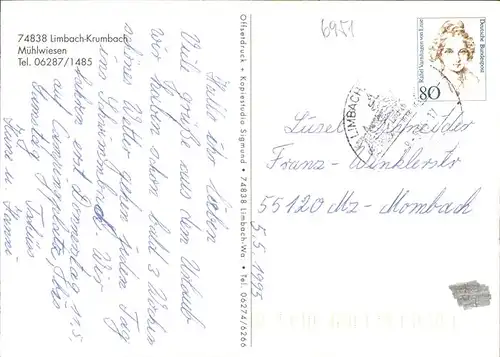 74838 Limbach-Krumbach
Mühlwiesen
Tel. 06287/1485
Hallo ihr Lieben
Viele Grüße aus dem Urlaub
wir haben schon bald 3 Wochen
schönes Wetter gehen jeden Tag
ins Schwimmbad. Wir
fahren erst Donnerstag 11.5.
auf Campingplatz,
Samstag
Offsetdruck + Kopiestudio Sigmund • 74838 Limbach-Wa. • Tel. 06274/6266
6951
Deutsche Bundespost
Rahel Varnhagen von Ense
80
LIMBACH
Franz-Winklerstr
55120 Mz-Mombach
5.5.1995